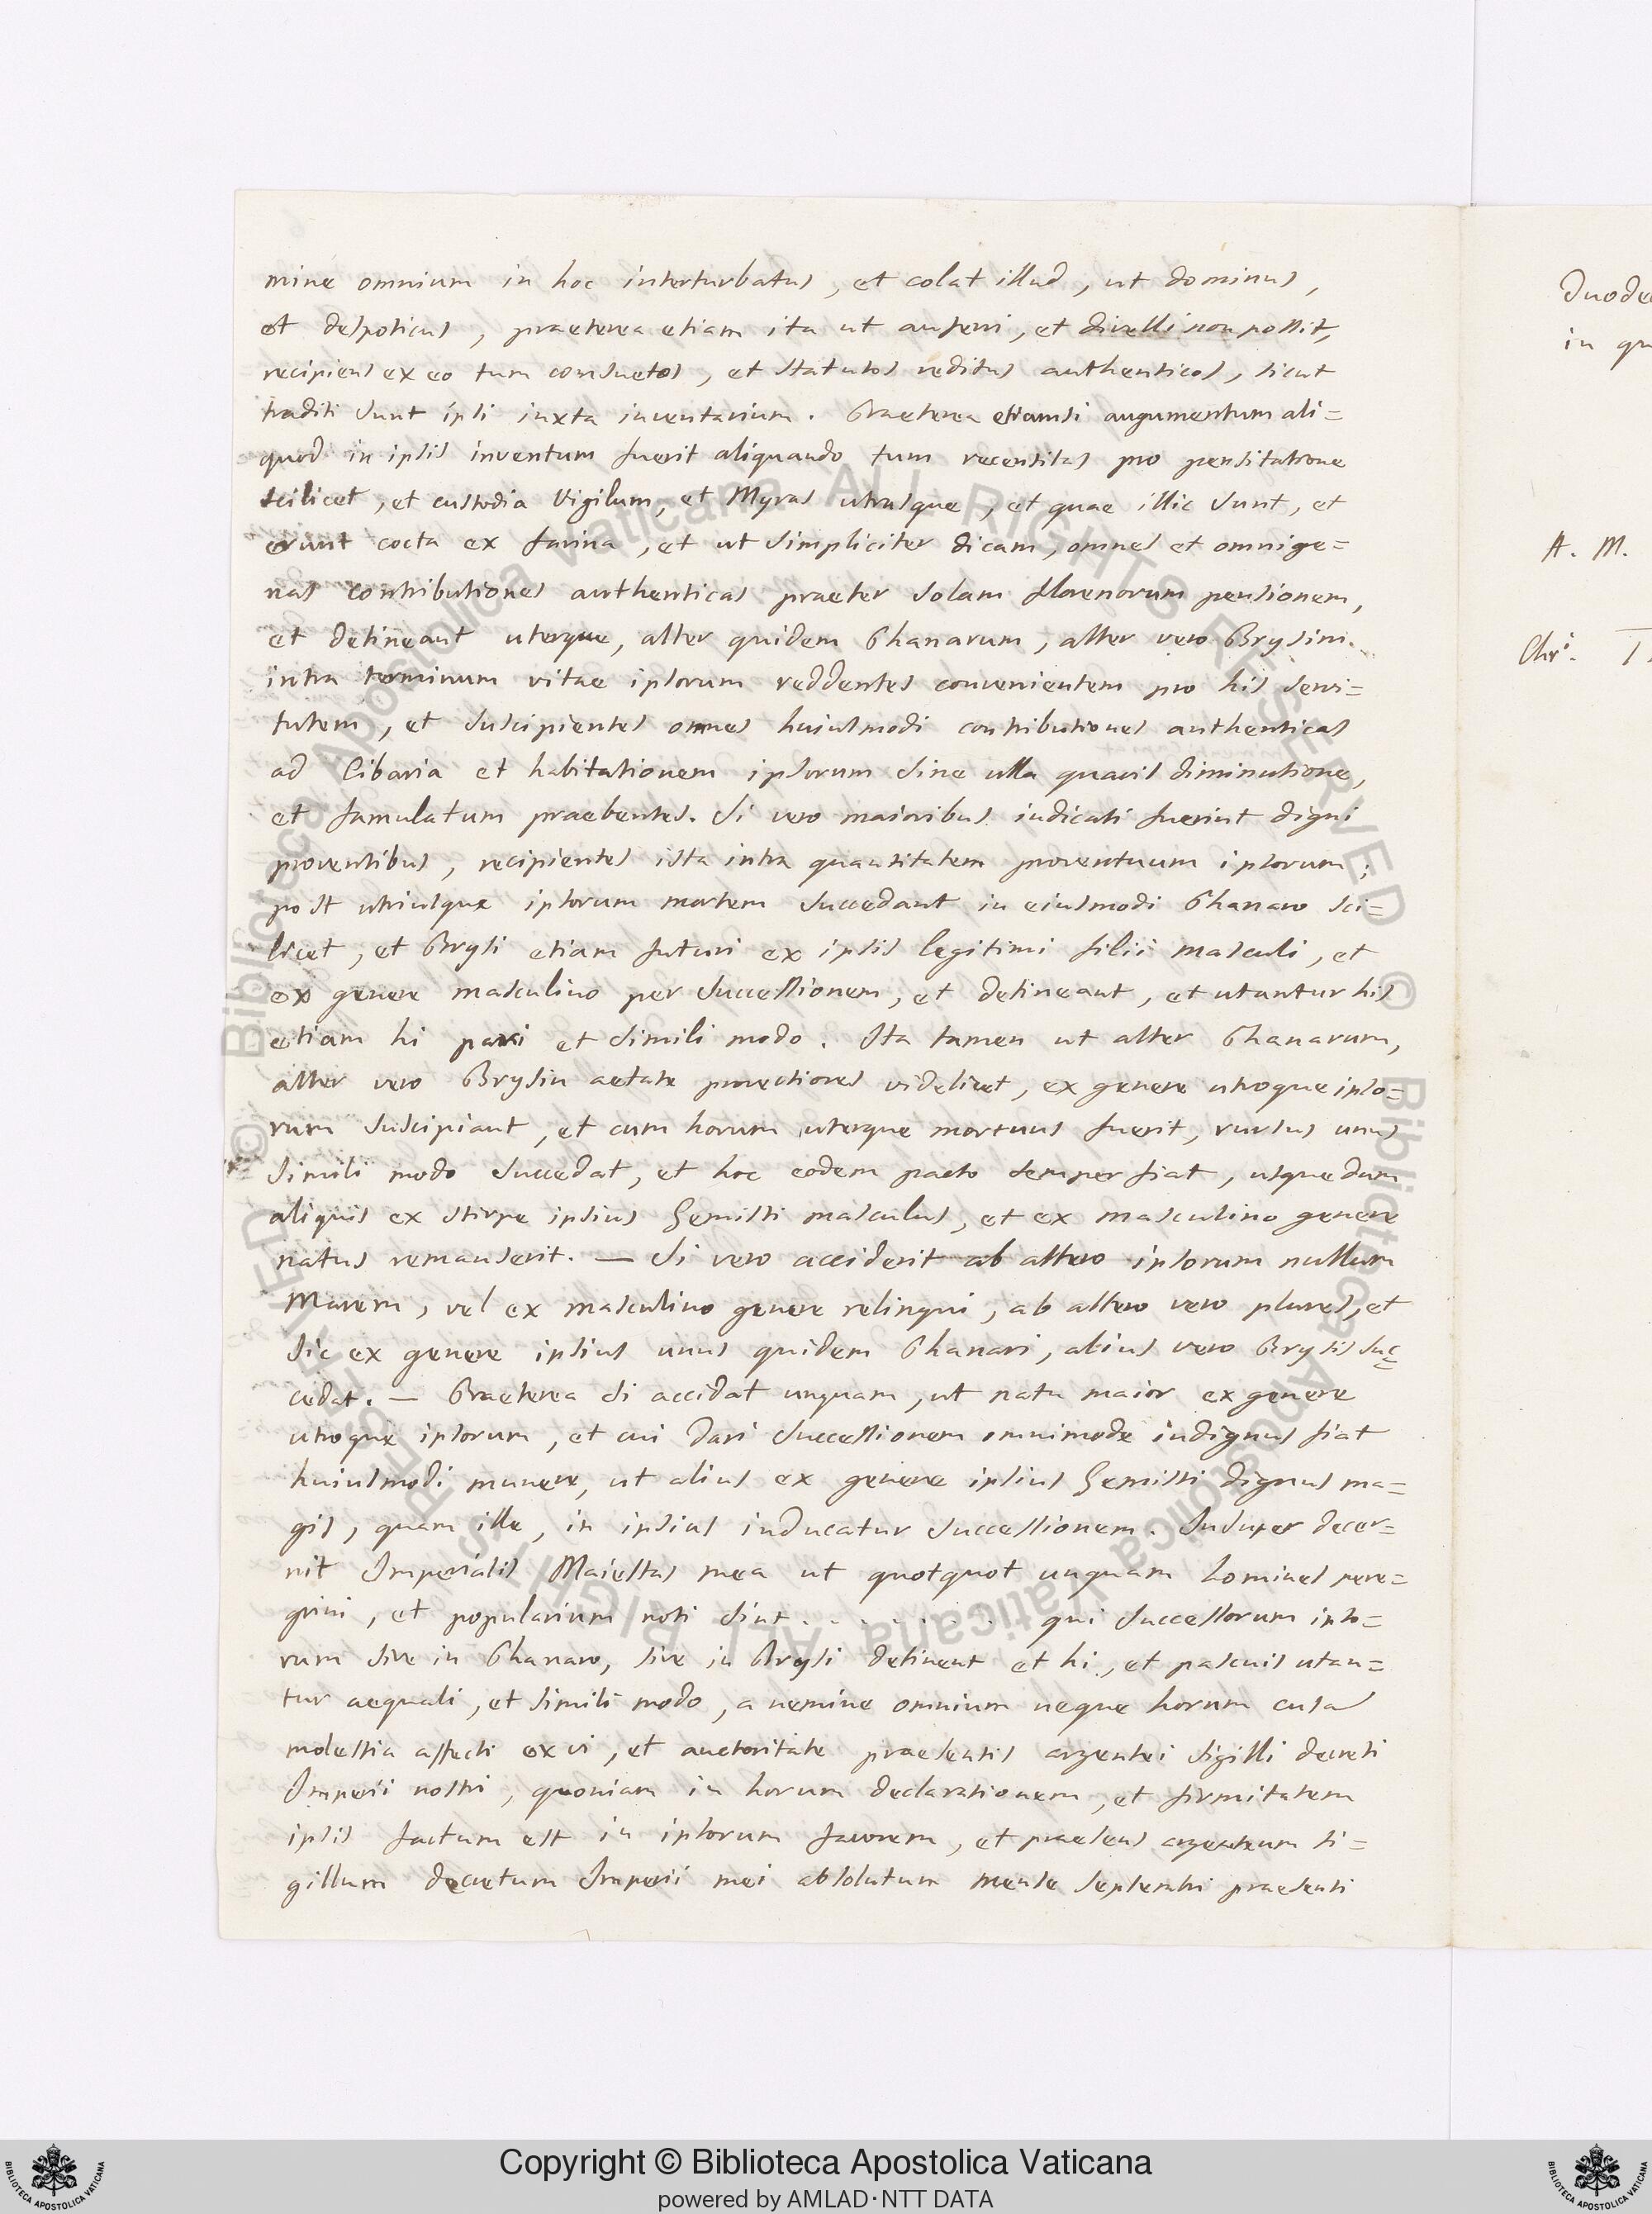 mine omnium in hoc interturbatus, et colat illud, ut dominus,
et despoticus, praeterea etiam ita ut auferri, et divelli non possit,
recipiens ex eo tum consuetos, et statutos reditus authenticos, sicut
traditi sunt ipsi iuxta inventarium. Praeterea etiamsi augumentum ali=
quod in ipsis inventum fuerit aliquando tum recensitas pro pensitatione
scilicet, et custodia Vigilum, et Myras utrasque, et quae illic sunt, et
erunt cocta ex farina, et ut simpliciter dicam, omnes et omnige=
nas contributiones authenticas praeter solam florenorum pensionem,
et detineant uterque, alter quidem Phanarum, alter vero Brysim
intra terminum vitae ipsorum reddentes convenientem pro his servi=
tutem, et suscipientes omnes huiusmodi contributiones authenticas
ad Cibaria et habitationem ipsorum sine ulla quavis diminutione,
et famulatum praebentes. Si vero maioribus iudicati fuerint digni
proventibus, recipientes ista intra quantitatem proventuum ipsorum;
post utriusque ipsorum mortem succedant in eiusmodi Phanaro sci=
licet, et Brysi etiam futuri ex ipsis legitimi filii masculi, et
ex genere masculino per successionem, et detineant, et utantur his
etiam hi pari et simili modo. Ita tamen ut alter Phanarum,
alter vero Brysin aetate provectiores videlicet, ex genere utroque ipso=
rum suscipiant, et cum horum uterque mortuus fuerit, rursus unus
simili modo succedat, et hoc eodem pacto semper fiat, usque dum
aliquis ex stirpe ipsius Gemisti masculus, et ex masculino genere
natus remanserit. — Si vero acciderit ab altero ipsorum nullum
Marem, vel ex masculino genere relinqui, ab altero vero plures, et
sic ex genere ipsius unus quidem Phanari, alius vero Brysis suc=
cedat. — Praeterea si accidat unquam, ut natu maior ex genere
utroque ipsorum, et cui dari successionem omnimode indignus fiat
huiusmodi munere, ut alius ex genere ipsius Gemisti dignus ma=
gis, quam ille, in ipsius inducatur successionem. Insuper decer=
nit Imperialis Maiestas mea ut quotquot unquam homines pere=
grini, et popularium noti sint . . . . . . . . qui successorum ipso=
rum sive in Phanaro, sive in Brysi detinent et hi, et pascuis utan=
tur aequali, et simili modo, a nemine omnium neque horum causa
molestia affecti ex vi, et auctoritate praesentis argentei sigilli decreti
Imperii nostri, quoniam in horum declarationem, et firmitatem
ipsis factum est in ipsorum favorem, et praesens argenteum si=
gillum decretum Imperii mei absolutum mense Septembri praesenti
in qu
A. M.
Copyright © Biblioteca Apostolica Vaticana
powered by AMLAD·NTT DATA